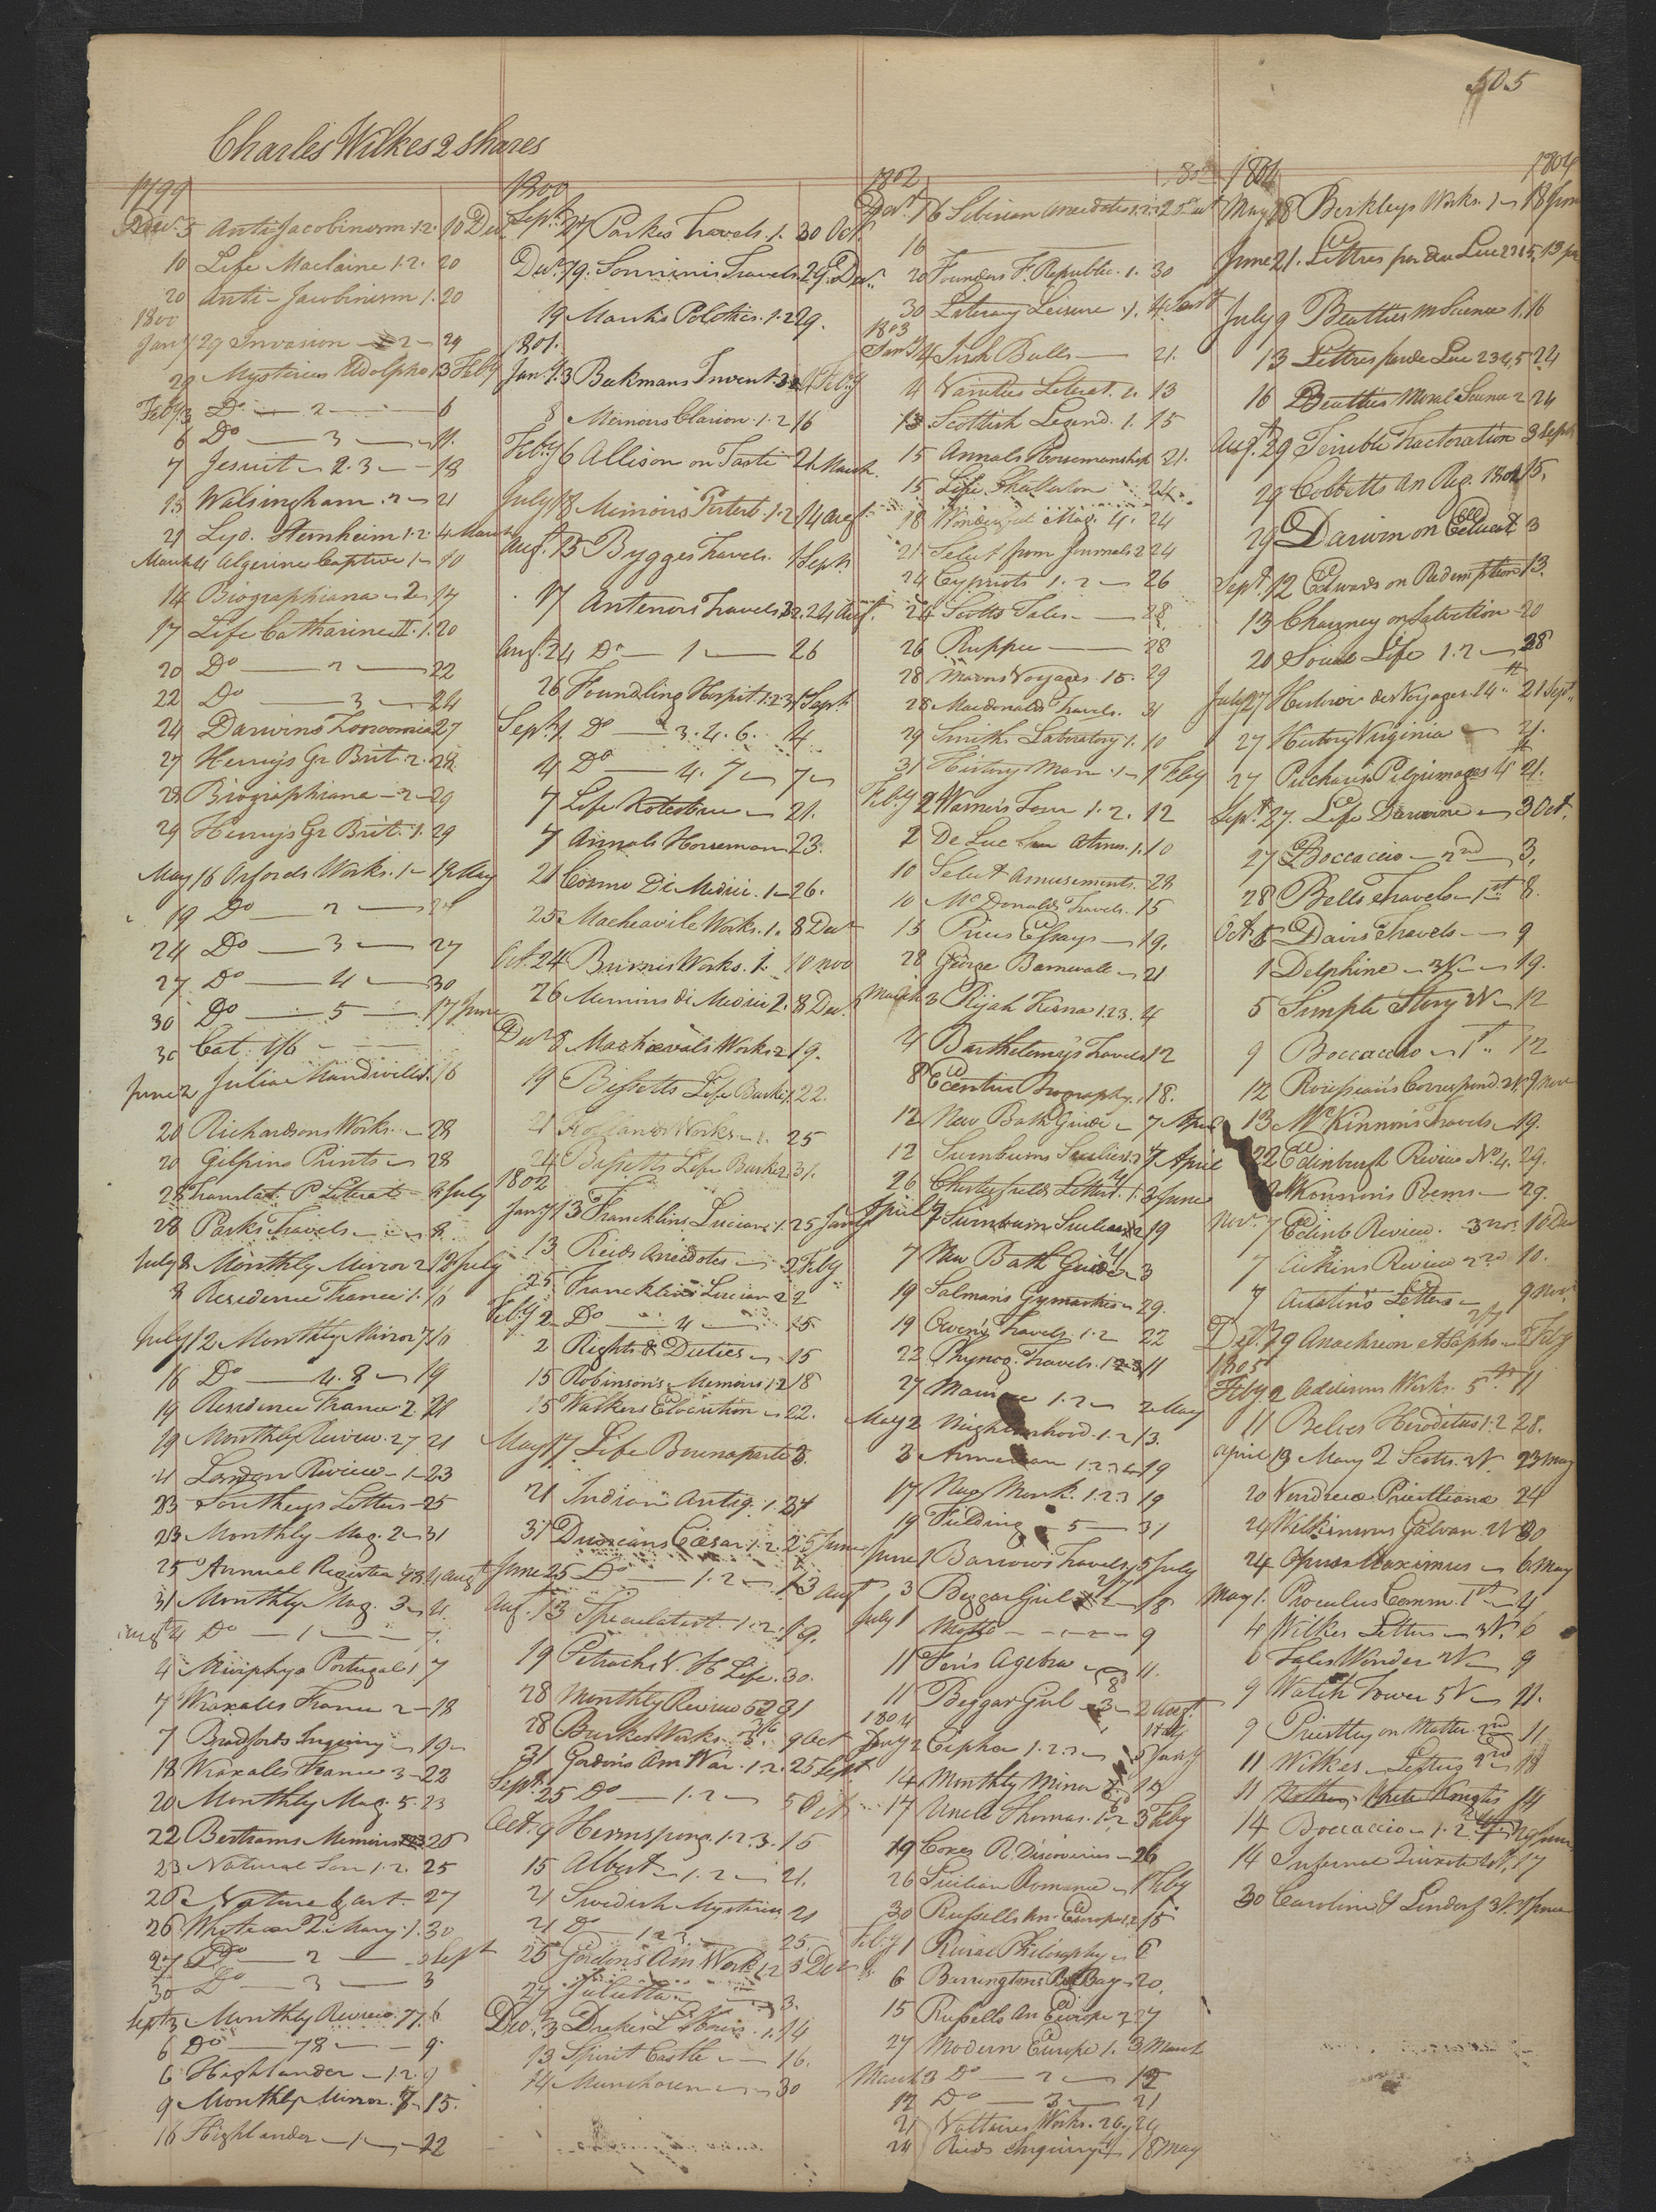 505
Charles Wilkes 2 shares
1799
Decr. 5 Anti-Jacobinism 1.2. 10 Decr
10 Life Maclaine 1.2. 20
20 Anti-Jacobinism 1. 20
1800
Jany 29 Invasion — 2 — 29
29 Mysteries Udolpho 1 3 Feby
Feby 3 Do — 2 — 6
6 Do — 3 — 11.
7 Jesuit — 2.3 — 18
15 Walsingham . 2 — 21
21 Lyd. Sternheim 1.2. 4 March
March 4 Algerine Captive 1 — 10
14 Biographiana — 2 — 17
17 Life Catharine II. 1. 20
20 Do — 2 — 22
22 Do — 3 — 24
24 Darwins Zoonomia 27
27 Henrys Gr Brit. 2. 28
28 Biographiana — 2 — 29
29 Henrys Gr Brit. 1. 29
May 16 Orfords Works. 1 — 19 May
19 Do — 2 — 24
24 Do — 3 — 27
27 Do — 4 — 30
30 Do — 5 — 17 June
30 Cat. 1/6
June 2 Julia Mandiville 1. 16
20 Richardsons Works. — 28
20 Gilpins Prints — 28
28 Translat. P Literat — 8 July
28 Parks Travels — 8
July 8 Monthly Mirror 2 12 July
8 Residence France 1. 16
July 12 Monthly Mirror 7 16
16 Do — 4. 8 — 19
19 Residence France 2. 21
19 Monthly Review. 27 21
21 London Review — 1 — 23
23 Southeys Letters — 25
23 Monthly Mag. 2 — 31
25 Annual Register 93 4 Augt
31 Monthly Mag. 3 — 4.
Augt 4 Do — 1 — 7.
4 Murphys Portugal 1 7
7 Wraxalls France 2 — 18
7 Bradfords Inquiry — 19
18 Wraxalls France 3 — 22
20 Monthly Mag. 5. 23
22 Bertrams Memoirs 1.2.3 25
23 Natural Son 1.2. 25
25 Nature & Art — 27
26 Whitaker Q Mary. 1. 30
27 Do — 2 — 3 Sept
30 Do — 3 — 3
Sept 3 Monthly Review. 77. 6
6 Do — 78 — 9
6 Highlander — 1.2. 9
9 Monthly Mirror. 7 — 15.
16 Highlander — 1 — 22
1800
Sept. 27 Parkes Travels. 1. 30 Oct.
Decr. 19. Sonninis Travels. 2 9 Decr.
19 Marsh's Politics. 1.2 29.
1801.
Jany. 3 Beckmans Invent. 3. 4 Feby
8 Memoirs Clarion. 1.2 16
Feby 6 Allison on Taste 21 March
July 18 Memoirs Pertert. 1.2 14 Augt
Augt. 15 Bygges Travels. 1 Sept
17 Antenors Travels 3.2. 24 Augt.
Augt. 24 Do — 1 — 26
26 Foundling Hospit. 1.2.3. 1 Sept
Sept. 1 Do — 3. 4. 6. 4
4 Do — 4. 7 — 7
7 Life Kotzebue — 21.
7 Annals Horseman 23.
21 Cosmo Di Medici. 1 — 26.
25 Macheavile Works. 1. 8 Decr
Oct. 24 Burns's Works. 1. 10 Nov
26 Memoirs di Medici 2. 8 Decr.
Decr 8 Machiavels Works 2 19.
19 Bissetts Life Burke 1. 22.
21 Hollands Works — 1. 25
24 Bissetts Life Burke 2. 31.
1802
Jany 13 Francklins Lucian. 1. 25 Jany
13 Reids Anecdotes — 2 Feby
25 Francklins Lucian 2 2
Feby 2 Do — 4 — 15
2 Rights & Duties — 15
15 Robinson's Memoirs 1.2 18
15 Walkers Elocution — 22.
May 17 Life Buonaparte 3.
21 Indian Antiq. 1. 31
31 Duncans Cæsar. 1.2. 25 June
June 25 Do — 1.2 — 13 Augt
Aug. 13 Speculatist. 1.2. 19.
19 Petrachs V. H Life. 30.
28 Monthly Review 52 31
28 Burkes Works — 5. 9 Oct
31 Gordons Am War. 1.2. 25 Sept
Sept. 25 Do — 1.2 — 5 Oct
Oct. 9 Hermsprong. 1.2.3. 15
15 Albert — 1.2 — 21.
21 Swedish Mysteries 21
21 Do — 1.2.3. 25
25 Gordons Am Wark 1.2 3 Decr
27 Julietta — 3.
Dec. 3 Drakes L Hours. 1. 14
13 Spirit Castle — 16.
14 Munchosen — 30
1802
Decr. 16 Siberian Anecdotes 1.2.3 25 Decr
16
20 Founders F. Republic. 1. 30
30 Literary Leisure. 1. 4 Jany
1803
Jany 4 Irish Bulls — 21.
4 Varieties Literat. 2. 13
13 Scottish Legend. 1. 15
15 Annals Horsemanship 21.
15 Life Challerton 24.
18 Wonderful Mag. 4. 24
21 Select from Journals 2 24
24 Cypriots 1.2 — 26
24 Scotts Tales — 28
26 Ruppee — 28
28 Mavors Voyages. 15. 29
28 Macdonalds Travels. 31
29 Smiths Laboratory 1. 10
31 History Man. 1 — 1 Feby
Feby 2 Warners Tour 1.2. 12
2 De Luc Atmos. 1. 10
10 Select Amusements. 28
10 McDonalds Travels. 15
15 Pius Essays — 19.
28 George Barnwell — 21
March 3 Rijah Kisna 1.2.3. 4
4 Barthelemys Travels 12
8 Eccentric Biography. 18.
12 New Bath Guide — 7 April
12 Swinburns Sicilies. 1 7 April
26 Chesterfields Letters. 1. 3 June
April 7 Swinburn Sicilies 2 19
7 New Bath Guide — 3
19 Salmans Gymnastics — 29.
19 Owens Travels 1.2 22
22 Physiog. Travels. 1.2.3 11
27 1.2 — 2 May
May 2 Neighbourhood. 1.2 13.
3 1.2.3.4 19
17 Monk. 1.2.3 19
19 Fielding — 5 — 31
June 1 Barrows Travels 5 July
3 Beggar Girl 2 — 18
July 1 Motto — 2 — 9
11 Fens Agebra — 11.
11 Beggar Girl — 3 — 2 Augt.
1804
Jany 2 Cipher 1.2.3 — 5 Jany
14 Monthly Mirror 8. 19
17 Uncle Thomas. 1.2 3 Feby
19 Coxes R. Discoveries — 26
26 Sicilian Romance — 1 Feby
30 Russells An. Europe 1.2 15
Feby 1 Rural Philosophy — 6
6 Barringtons Bot Bay — 20.
15 Russells An Europe 2 27
27 Modern Europe 1. 3 March
March 3 Do — 2 — 12
12 Do — 3 — 21
21 Voltaires Works. 26. 24
24 Reids Inquiry 18 May
1804 1804
May 18 Berkleys Works. 1 — 18 June
June 21. Lettres par De Luc 2 3 4 5, 13
July 9 Beatties M Science 1. 16
13 Lettres par de Luc 2 3 4, 5 24
16 Beatties Moral Science 2 24
Augt. 29 Terrible Tractoration 3 Sept
29 Cobbetts An Reg. 1802 15.
29 Darwin on Educat. 3
Sept. 12 Edwards on Redemption 13.
13 Chauncy on Salvation 20
20 Social Life 1.2 — 28
July 27 Histoire des Voyages 14th 21 Sept.
27 History Virginia — 21.
27 Purchas's Pilgrimages 4th 21.
Sept. 27. Life Darwine — 3 Oct.
27 Boccaccio — 2nd — 3,
28 Bells Travels — 1st 8.
Oct 5 Davis Travels — 9
1 Delphine — 3V — 19.
5 Simple Story 2V — 12
9 Boccaccio — 1st 12
12 Rousseau's Correspond. 2V. 9 Nov
13 McKinnon's Travels — 19.
22 Edinburgh Review No. 4. 29.
McKinnon's Poems — 29.
Nov. 7 Edinb Review. 3 nos. 10 Decr
7 Aikins Review 2nd 10.
7 Austin's Letters — 9 Nov.
Dec. 29 Anachreon et Sapho — 2 Feby
1805
Feby. 2 Addisons Works. 5th 11
11 Beloes Heroditus 1.2 28.
April 13 Mary Q Scotts. 2V. 23 May
20 Vindiciæ Priestlianæ 24
24 Wilkinsons Galvan. 2V 30
24 Opus Maximus — 6 May
May 1. Proculus Comm. 1st — 4
4 Wilkes Letters — 3V. 6
6 Tales Wonder 2V — 9
9 Watch Tower 5V — 11.
9 Priestley on Matter. 2nd 11
11 Wilkes — Letters 2nd 18
11 White Knights 14
14 Boccaccio — 1.2. 29 June
14 Infernal Quixote 17
30 Caroline of Lindorf 3V. June